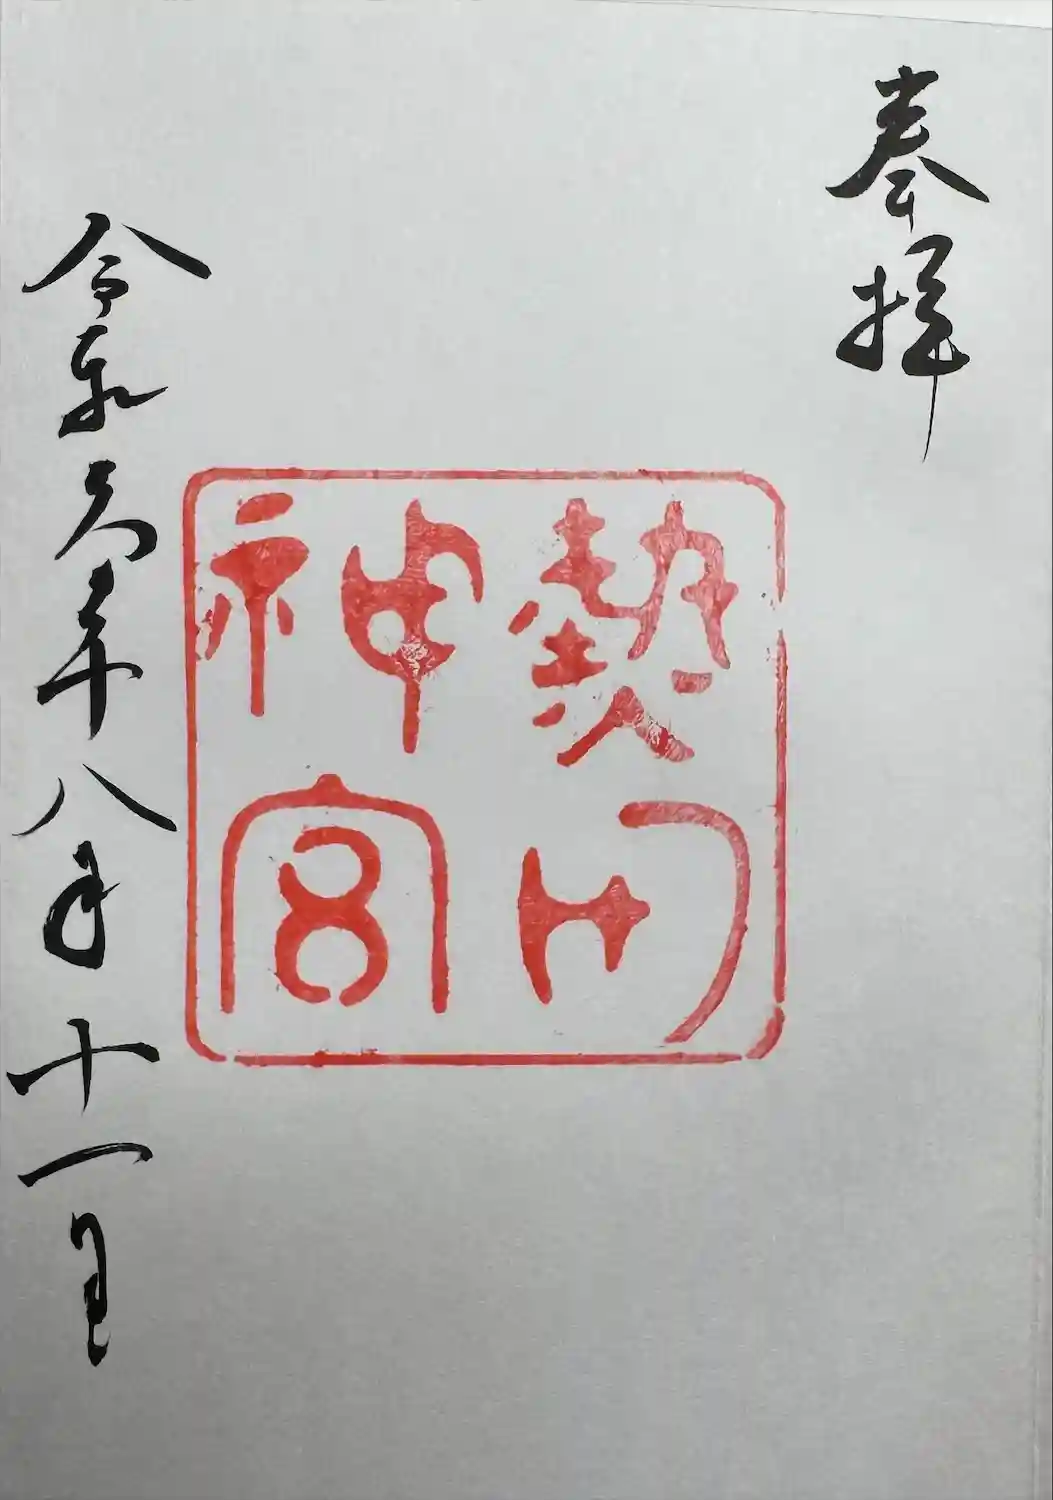 奉拝
熱田
神宮
令和六年八月十一日